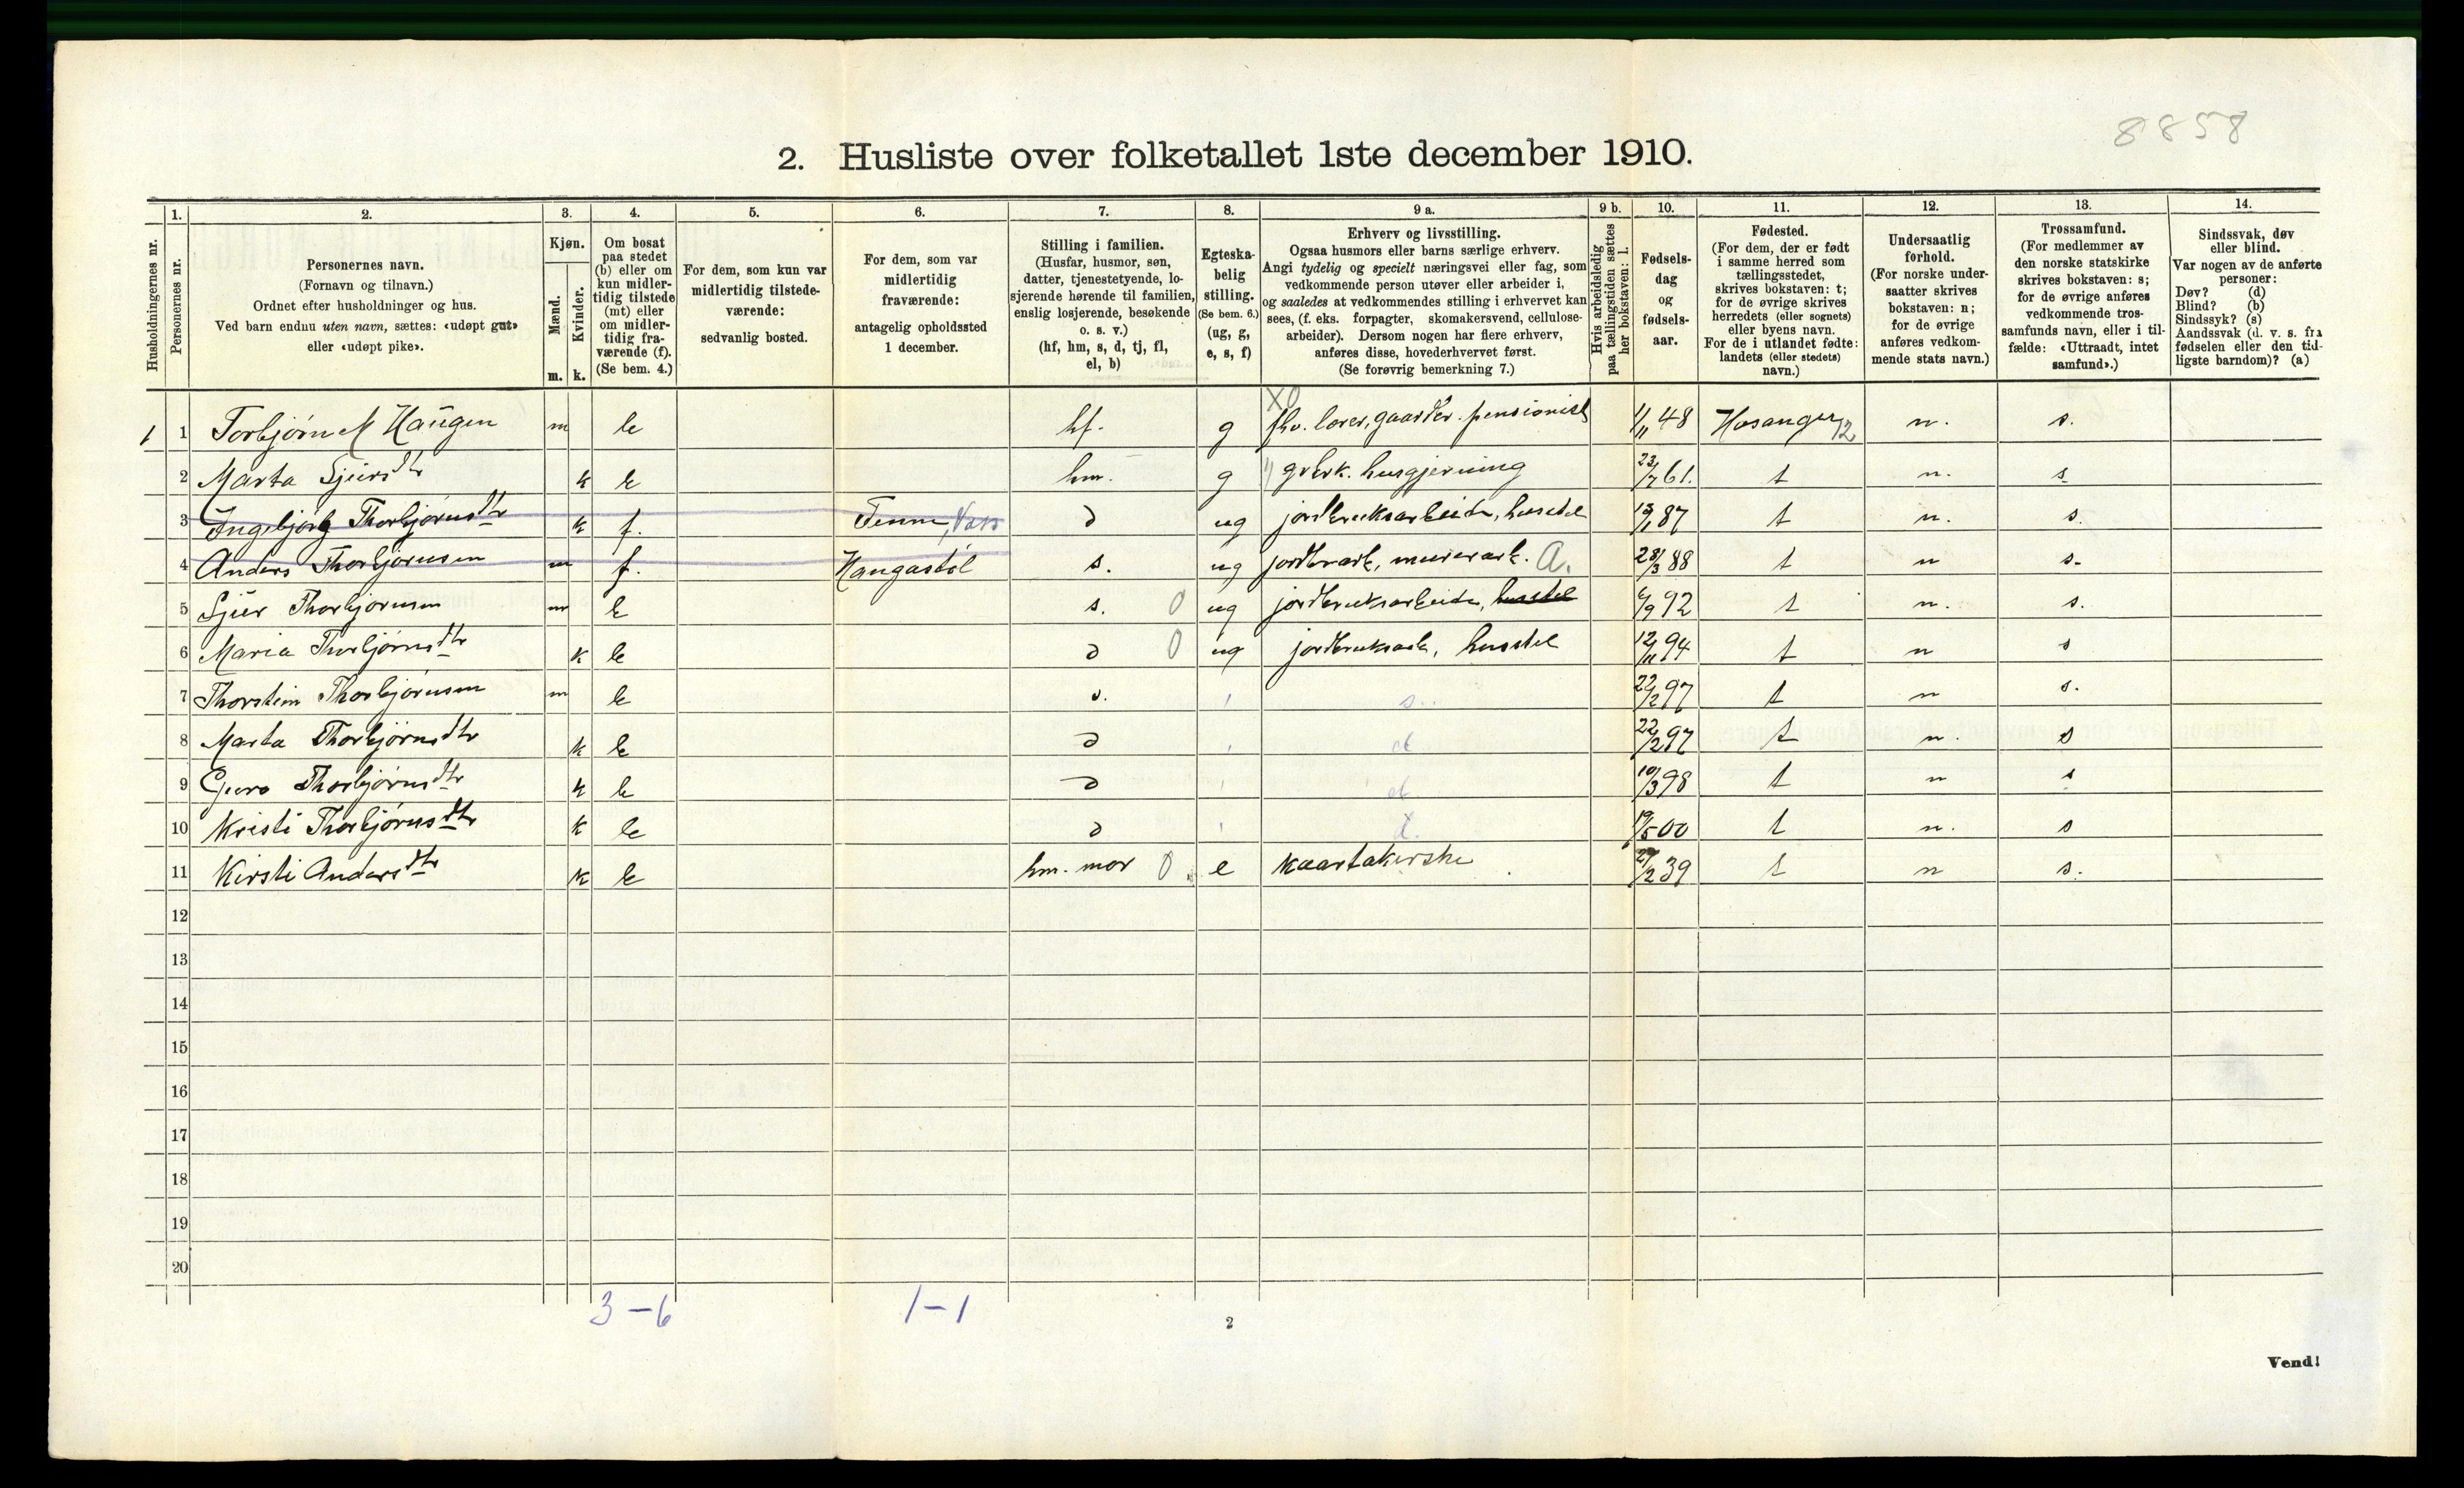 8858
2. Husliste over folketallet 1ste december 1910.
Husholdningernes nr.
1.
Personernes nr.
2.
Personernes navn.
(Fornavn og tilnavn.)
Ordnet efter husholdninger og hus.
Ved barn endnu uten navn, sættes: «udøpt gut»
eller «udøpt pike».
3.
Kjøn.
Mænd.
Kvinder.
m. k.
4.
Om bosat
paa stedet
(b) eller om
kun midler-
tidig tilstede
(mt) eller
om midler-
tidig fra-
værende (f).
(Se bem. 4.)
5.
For dem, som kun var
midlertidig tilstede-
værende:
sedvanlig bosted.
6.
For dem, som var
midlertidig
fraværende:
antagelig opholdssted
1 december.
7.
Stilling i familien.
(Husfar, husmor, søn,
datter, tjenestetyende, lo-
sjerende hørende til familien,
enslig losjerende, besøkende
o. s. v.)
(hf, hm, s, d, tj, fl,
el, b)
8.
Egteska-
belig
stilling.
(Se bem. 6.)
(ug, g,
e, s, f)
9 a.
Erhverv og livsstilling.
Ogsaa husmors eller barns særlige erhverv.
Angi tydelig og specielt næringsvei eller fag, som
vedkommende person utøver eller arbeider i,
og saaledes at vedkommendes stilling i erhvervet kan
sees, (f. eks. forpagter, skomakersvend, cellulose-
arbeider). Dersom nogen har flere erhverv,
anføres disse, hovederhvervet først.
(Se forøvrig bemerkning 7.)
9 b.
Hvis arbeidsledig
paa tællingstiden sættes
her bokstaven: l.
10.
Fødsels-
dag
og
fødsels-
aar.
11.
Fødested.
(For dem, der er født
i samme herred som
tællingsstedet,
skrives bokstaven: t;
for de øvrige skrives
herredets (eller sognets)
eller byens navn.
For de i utlandet fødte:
landets (eller stedets)
navn.)
12.
Undersaatlig
forhold.
(For norske under-
saatter skrives
bokstaven: n;
for de øvrige
anføres vedkom-
mende stats navn.)
13.
Trossamfund.
(For medlemmer av
den norske statskirke
skrives bokstaven: s;
for de øvrige anføres
vedkommende tros-
samfunds navn, eller i til-
fælde: «Uttraadt, intet
samfund».)
14.
Sindssvak, døv
eller blind.
Var nogen av de anførte
personer:
Døv? (d)
Blind? (b)
Sindssyk? (s)
Aandssvak (d. v. s. fra
fødselen eller den tid-
ligste barndom)? (a)
X0
1 1 Torbjørn M Haugen m b hf. g fhv. lærer, gaardbr. pensionist 1/11 48 Hosanger 12 n. s.
2 Marta Sjursdtr k b hm. g grbrk. husgjerning 23/7 61. t n. s
3 Ingebjørg Thorbjørnsdtr k f. Tenne, Voss d ug jordbruksarbeide, husstel 13/1 87 t n. s.
4 Anders Thorbjørnsen m f. Haugastøl s. ug jordbrark, murerarb. A. 28/3 88 t n s.
5 Sjur Thorbjørnsen m b s. 0 ug jordbruksarbeide, husstel 6/9 92 t n. s.
6 Maria Thorbjørnsdtr k b d 0 ug jordbruksarb, husstel 12/11 94 t n s
7 Thorstein Thorbjørnsen m b s. s.. 22/2 97 t n s.
8 Marta Thorbjørnsdtr k b d d 22/2 97 t n s
9 Guro Thorbjørnsdtr k b d d 10/3 98 t n s
10 Kristi Thorbjørnsdtr k b d d. 19/5 00 t n. s
11 Kirsti Andersdtr k b hm. mor 0 e kaartakerske 27/2 39 t n s.
12
13
14
15
16
17
18
19
20
3 – 6 1 – 1
2
Vend!